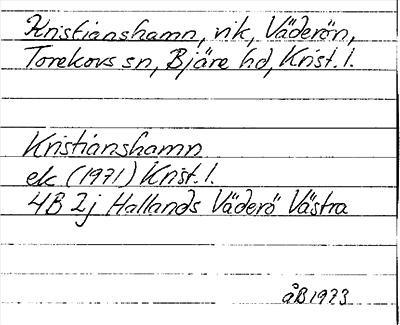 Kristianshamn, vik, Väderön,
Torekovs sn, Bjäre hd, Krist. l.
Kristianshamn
ek (1971) Krist. l.
4B 2j Hallands Väderö Västra
åB 1973